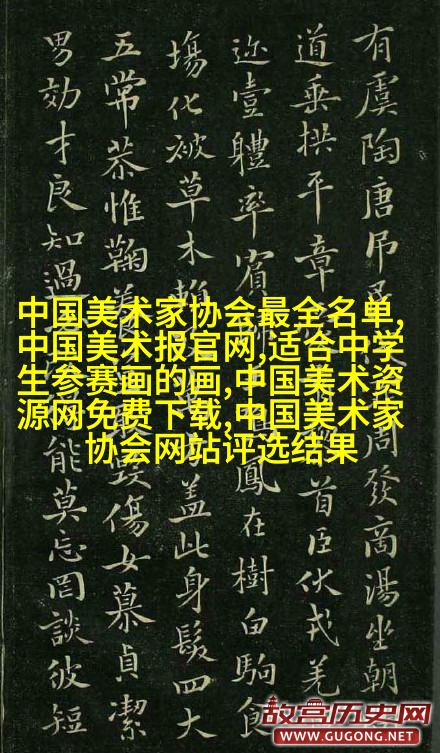 有虞陶唐吊周發商湯坐朝
道垂拱平章首臣伏戎羌
迩壹體率賓鳳在樹白駒食
塲化被草木蓋此身髮四大
五常恭惟鞠養毀傷女慕貞潔
男効才良知過能莫忘罔談彼短
中国美术家协会最全名单,
中国美术报官网,适合中学
生参赛画的画,中国美术资
源网免费下载,中国美术家
协会网站评选结果
故宫历史网
WWW.GUGONG.NET